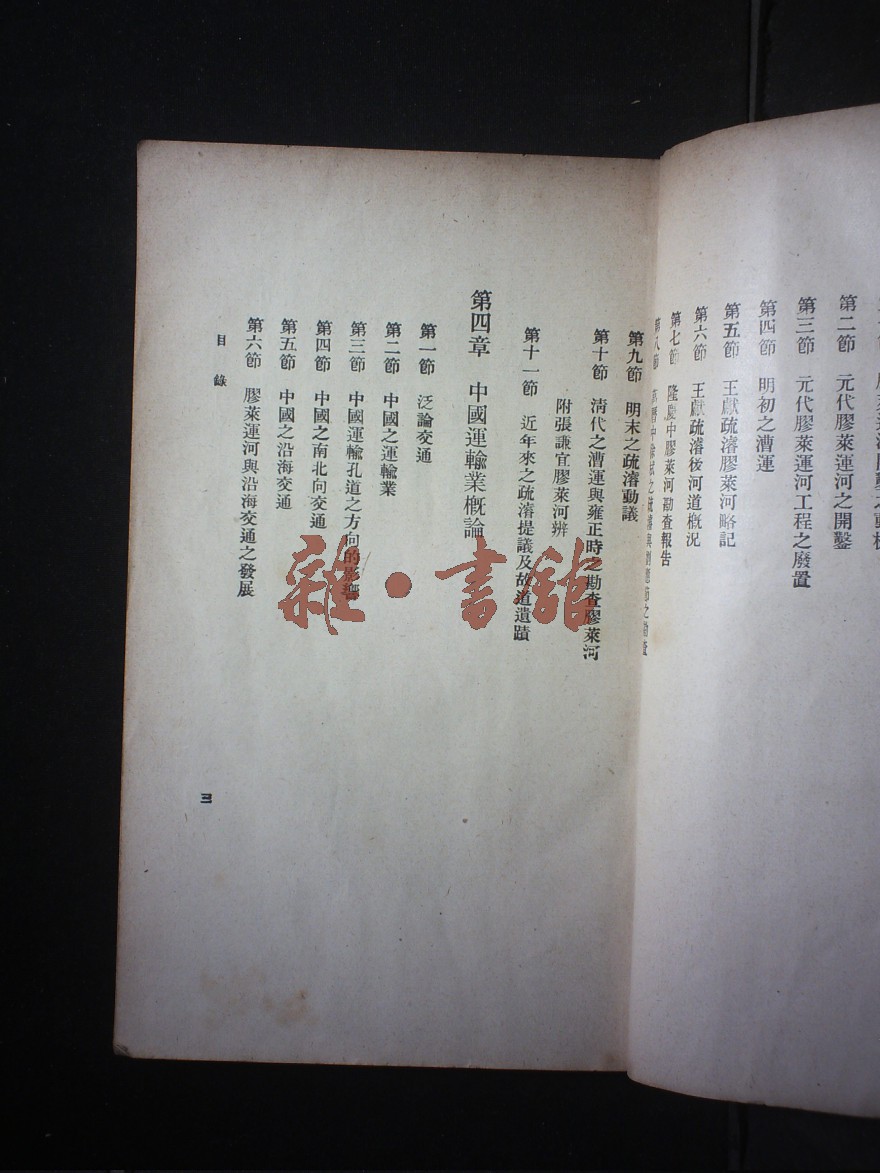 第二節　元代膠萊運河之開鑿
第三節　元代膠萊運河工程之廢置
第四節　明初之漕運
第五節　王獻疏濬膠萊河略記
第六節　王獻疏濬後河道槪況
第七節　隆慶中膠萊河勘查報告
第八節
第九節　明末之疏濬動議
第十節　淸代之漕運與雍正時之勘查膠萊河
附張謙宜膠萊河辨
第十一節　近年來之疏濬提議及故道遺蹟
第四章　中國運輸業槪論
第一節　泛論交通
第二節　中國之運輸業
第三節　中國運輸孔道之方向的影響
第四節　中國之南北向交通
第五節　中國之沿海交通
第六節　膠萊運河與沿海交通之發展
目錄
三
雜·書館